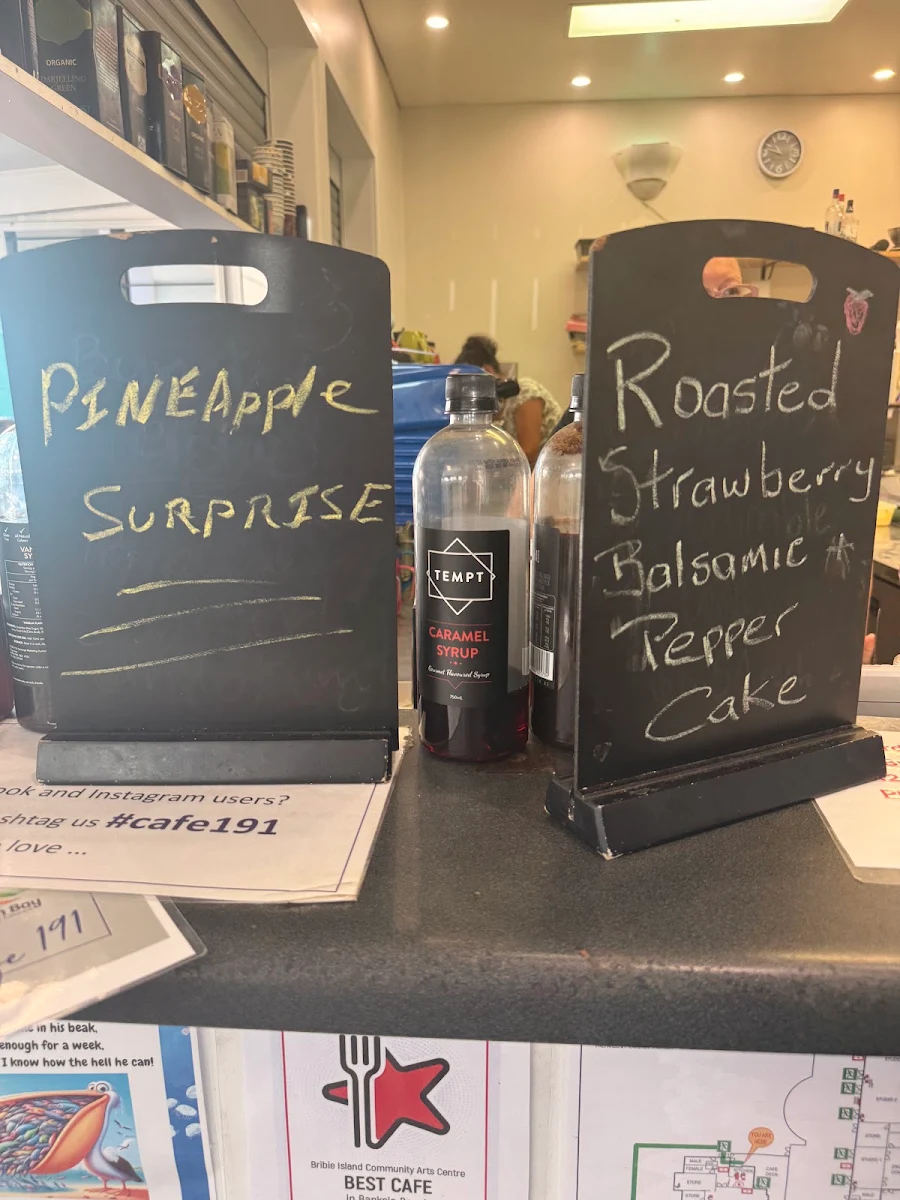 ORGANIC
DARJEELING
GREEN
PINEApple
SURPRISE
Roasted
Strawberry
Balsamic
Pepper
Cake
TEMPT
CARAMEL
SYRUP
Gourmet Flavoured Syrup
750ml
VAN
SY
ook and Instagram users?
shtag us #cafe191
love ...
Bay
191
in his beak,
enough for a week,
I know how the hell he can!
Bribie Island Community Arts Centre
BEST CAFE
YOU ARE
HERE
MALE
FEMALE
STORE
STORE